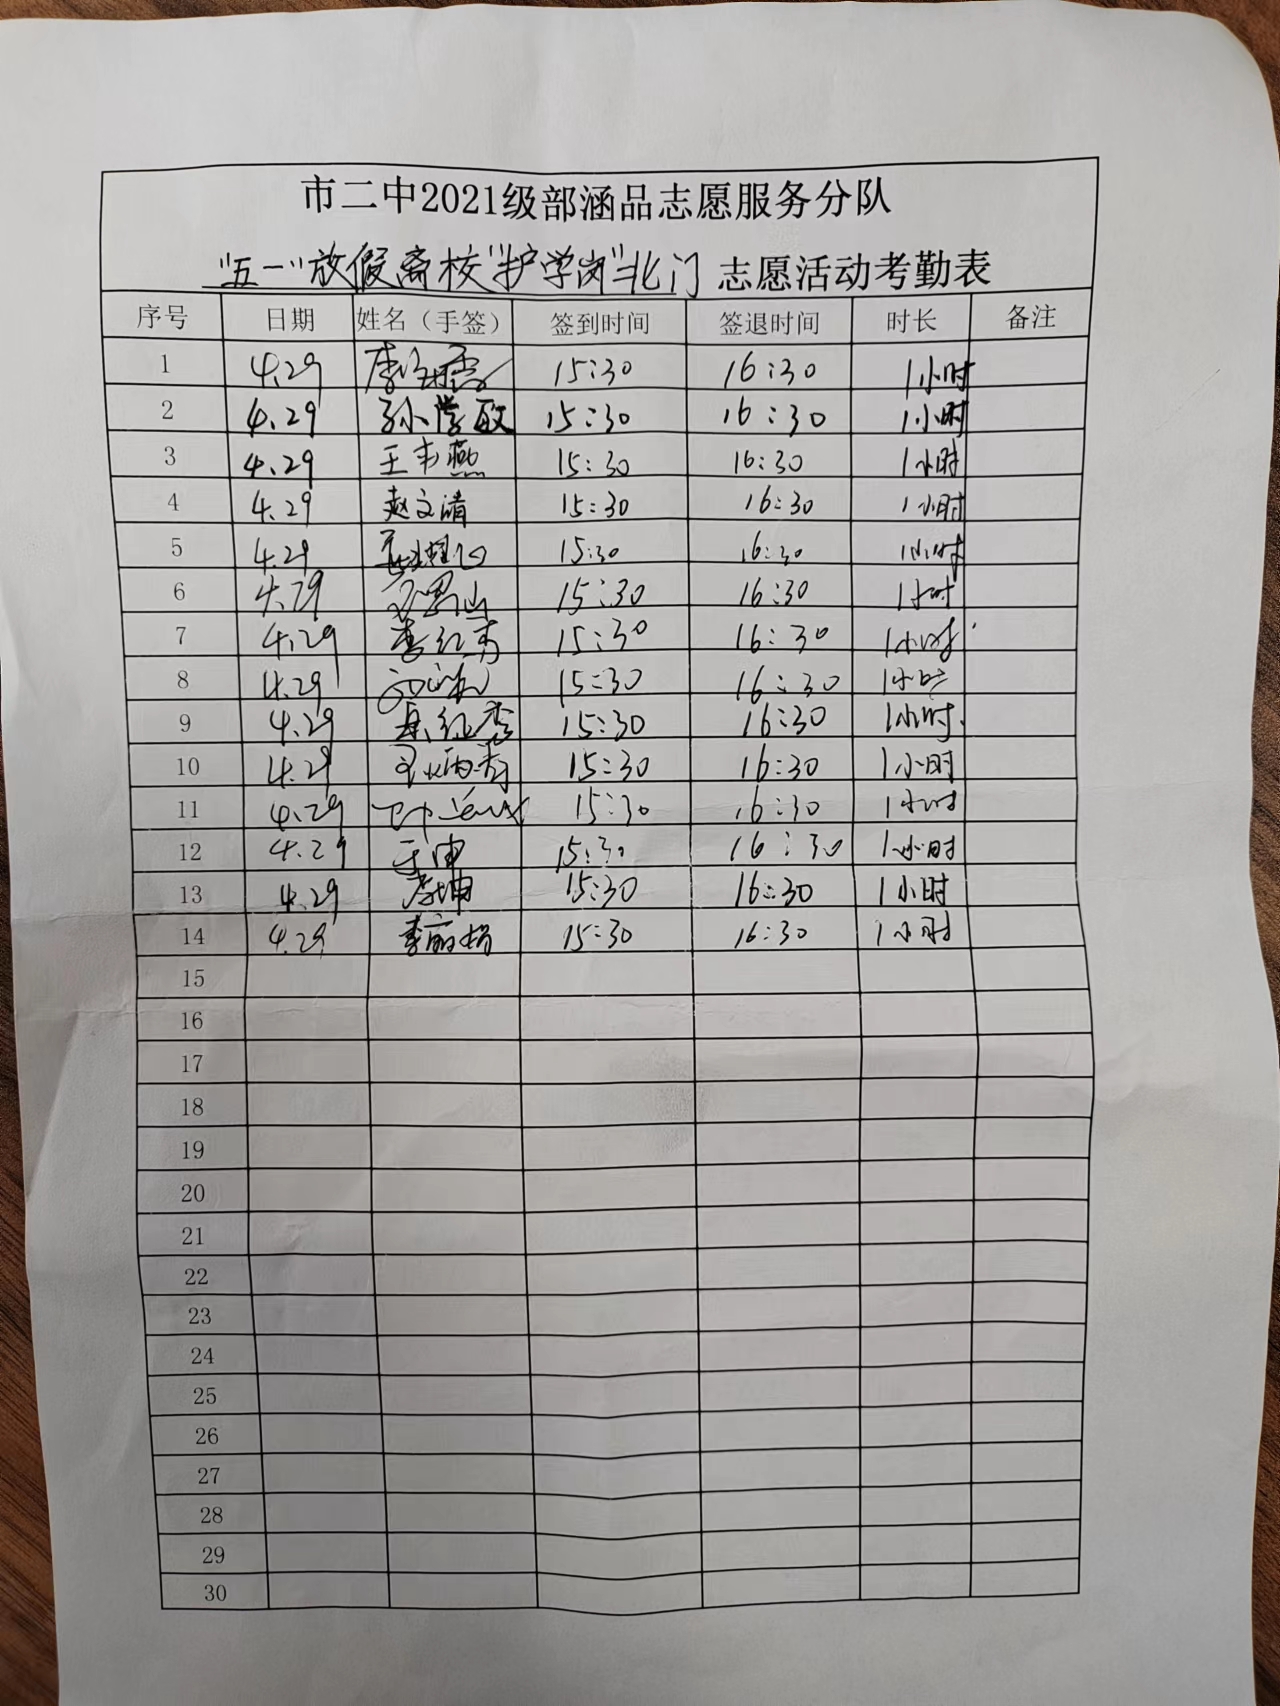 市二中2021级部涵品志愿服务分队
"五一"放假离校"护学岗"北门 志愿活动考勤表
序号 日期 姓名（手签） 签到时间 签退时间 时长 备注
1 4.29 15:30 16:30 1小时
2 4.29 孙学敏 15:30 16:30 1小时
3 4.29 王书燕 15:30 16:30 1小时
4 4.29 赵文清 15:30 16:30 1小时
5 4.29 15:30 16:30 1小时
6 4.29 15:30 16:30 1小时
7 4.29 李红秀 15:30 16:30 1小时
8 4.29 15:30 16:30 1小时
9 4.29 15:30 16:30 1小时
10 4.29 15:30 16:30 1小时
11 4.29 15:30 16:30 1小时
12 4.29 于申 15:30 16:30 1小时
13 4.29 李坤 15:30 16:30 1小时
14 4.29 李丽娟 15:30 16:30 1小时
15
16
17
18
19
20
21
22
23
24
25
26
27
28
29
30